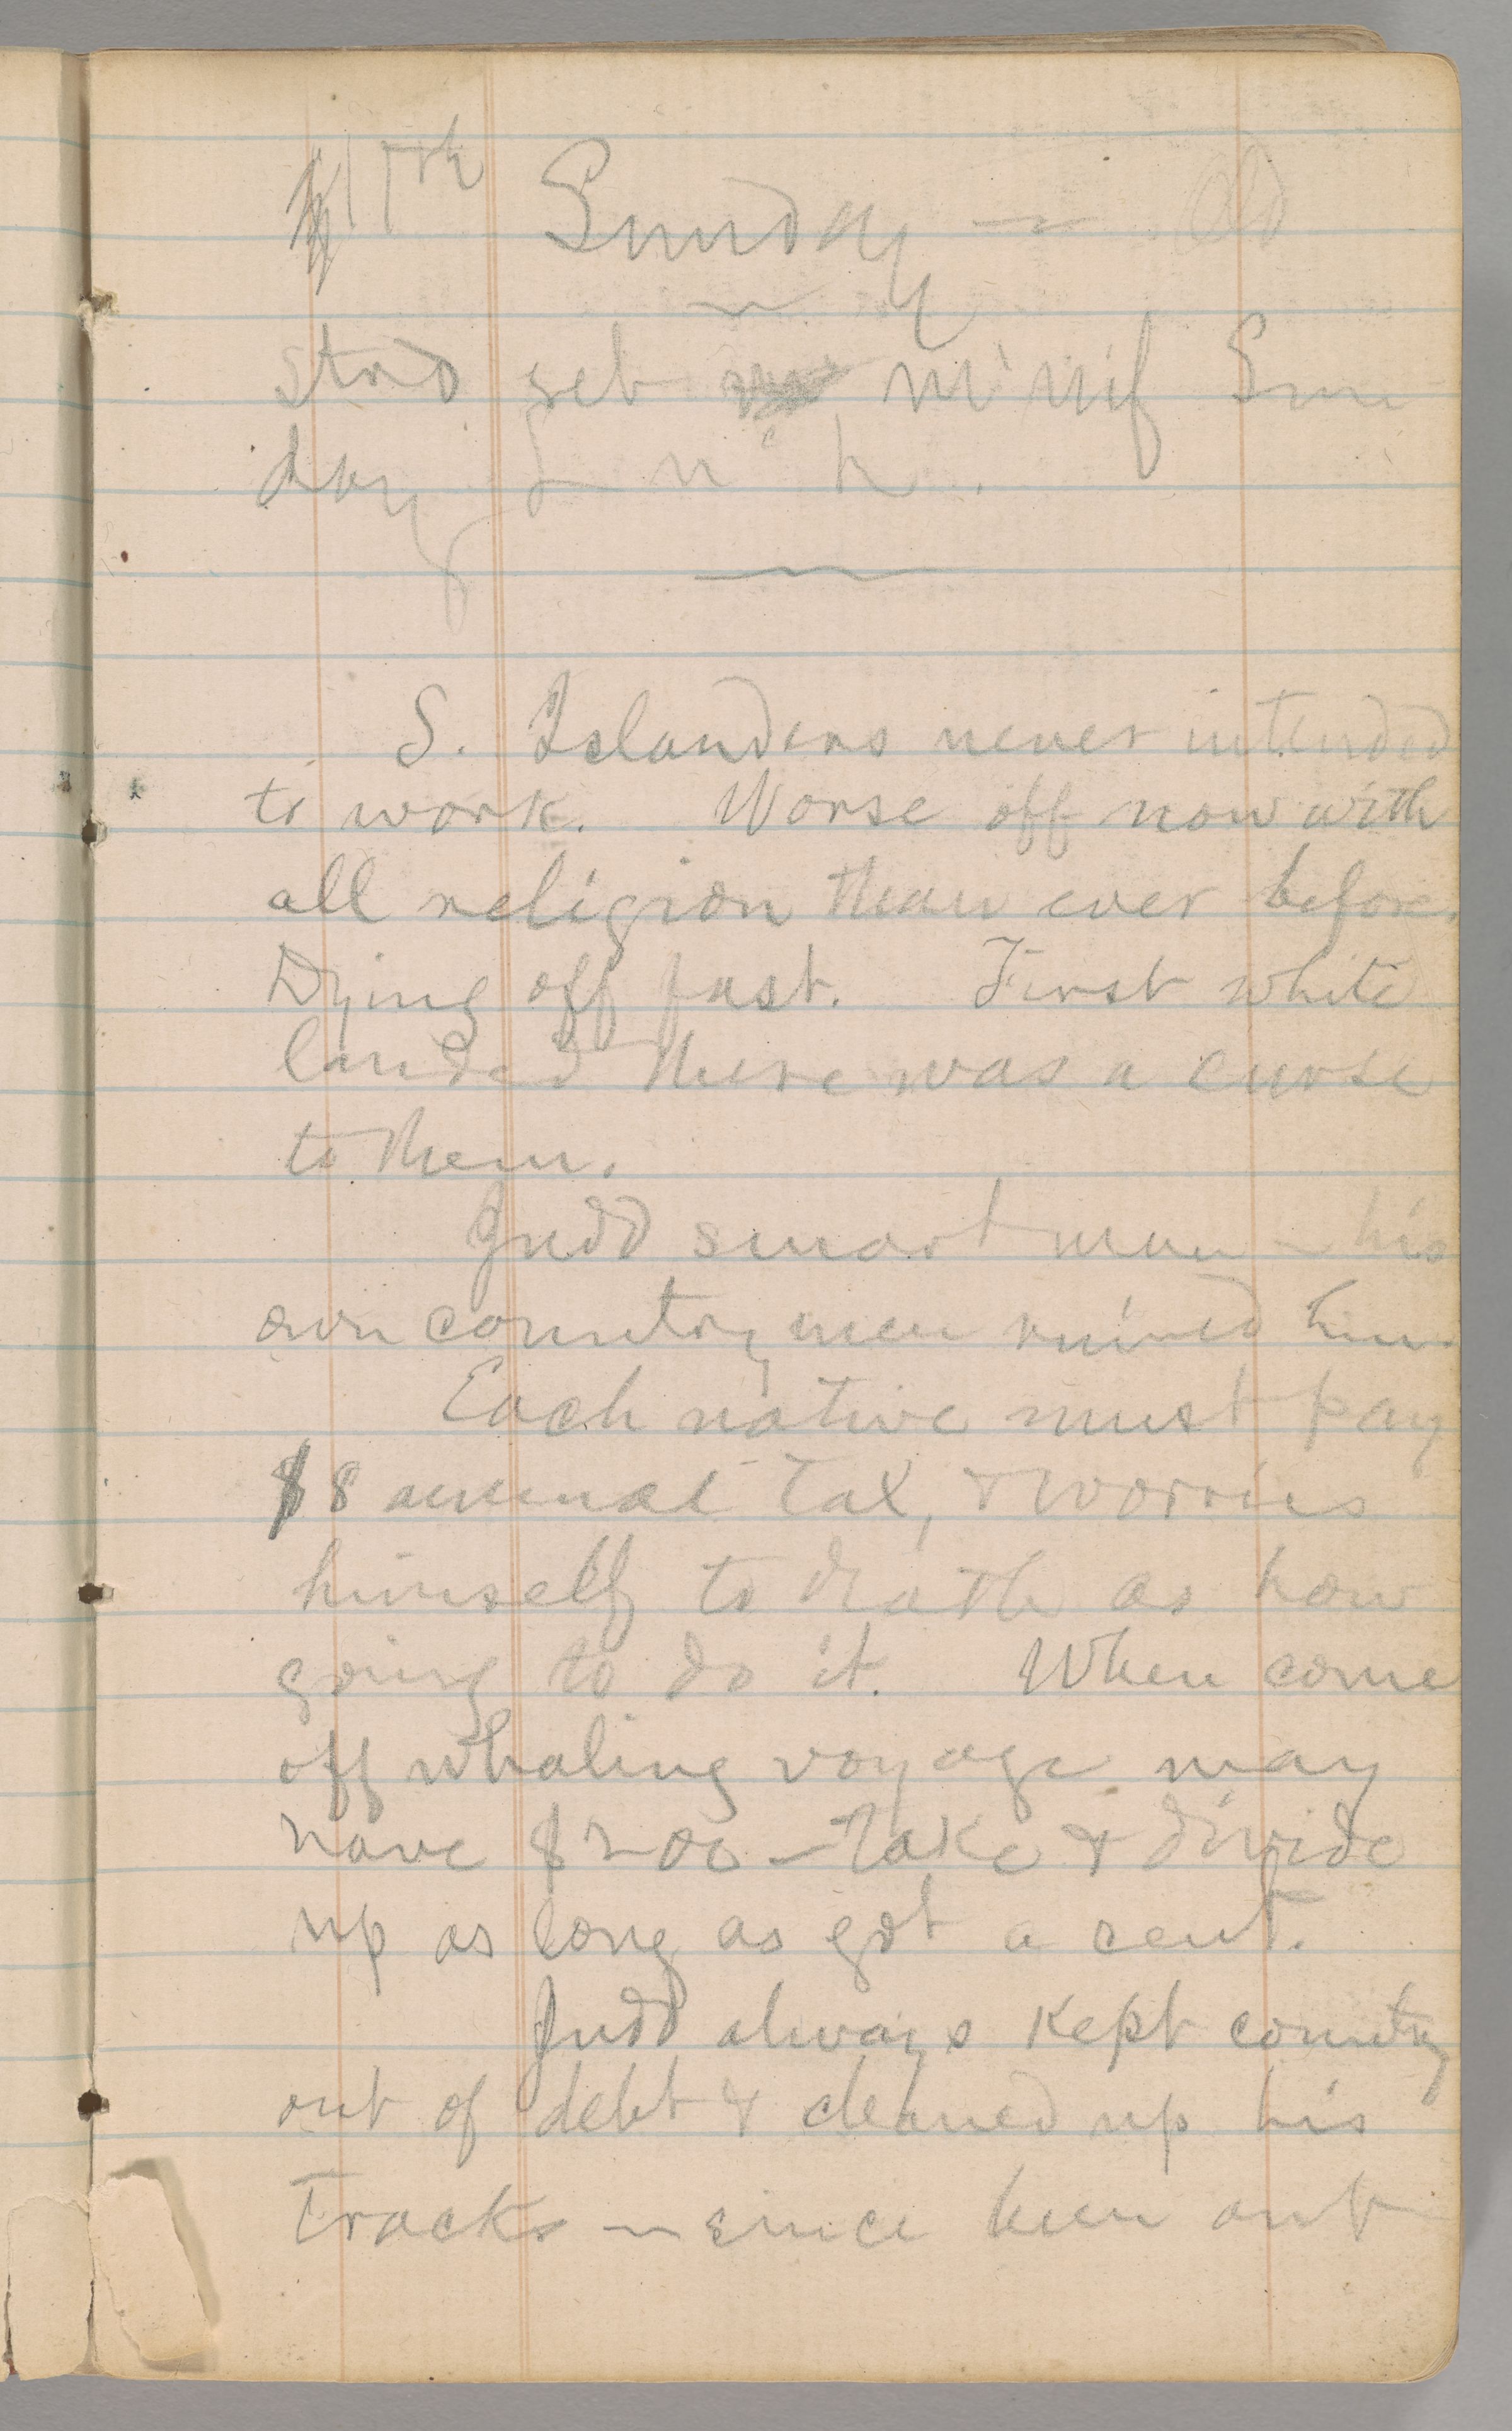 11th Sunday — Old
stod seb m'nif Sun
day S n h.
S. Islanders never intended
to work. Worse off now with
all religion than ever before.
Dying off fast. First white
landed there was a curse
to them.
Judd smart man — his
own countrymen ruined him.
Each native must pay
$8 annual tax, & worries
himself to death as how
going to do it. When come
off whaling voyage may
have $200 — take & divide
up as long as got a cent.
Judd always kept country
out of debt & cleaned up his
tracks — since been out